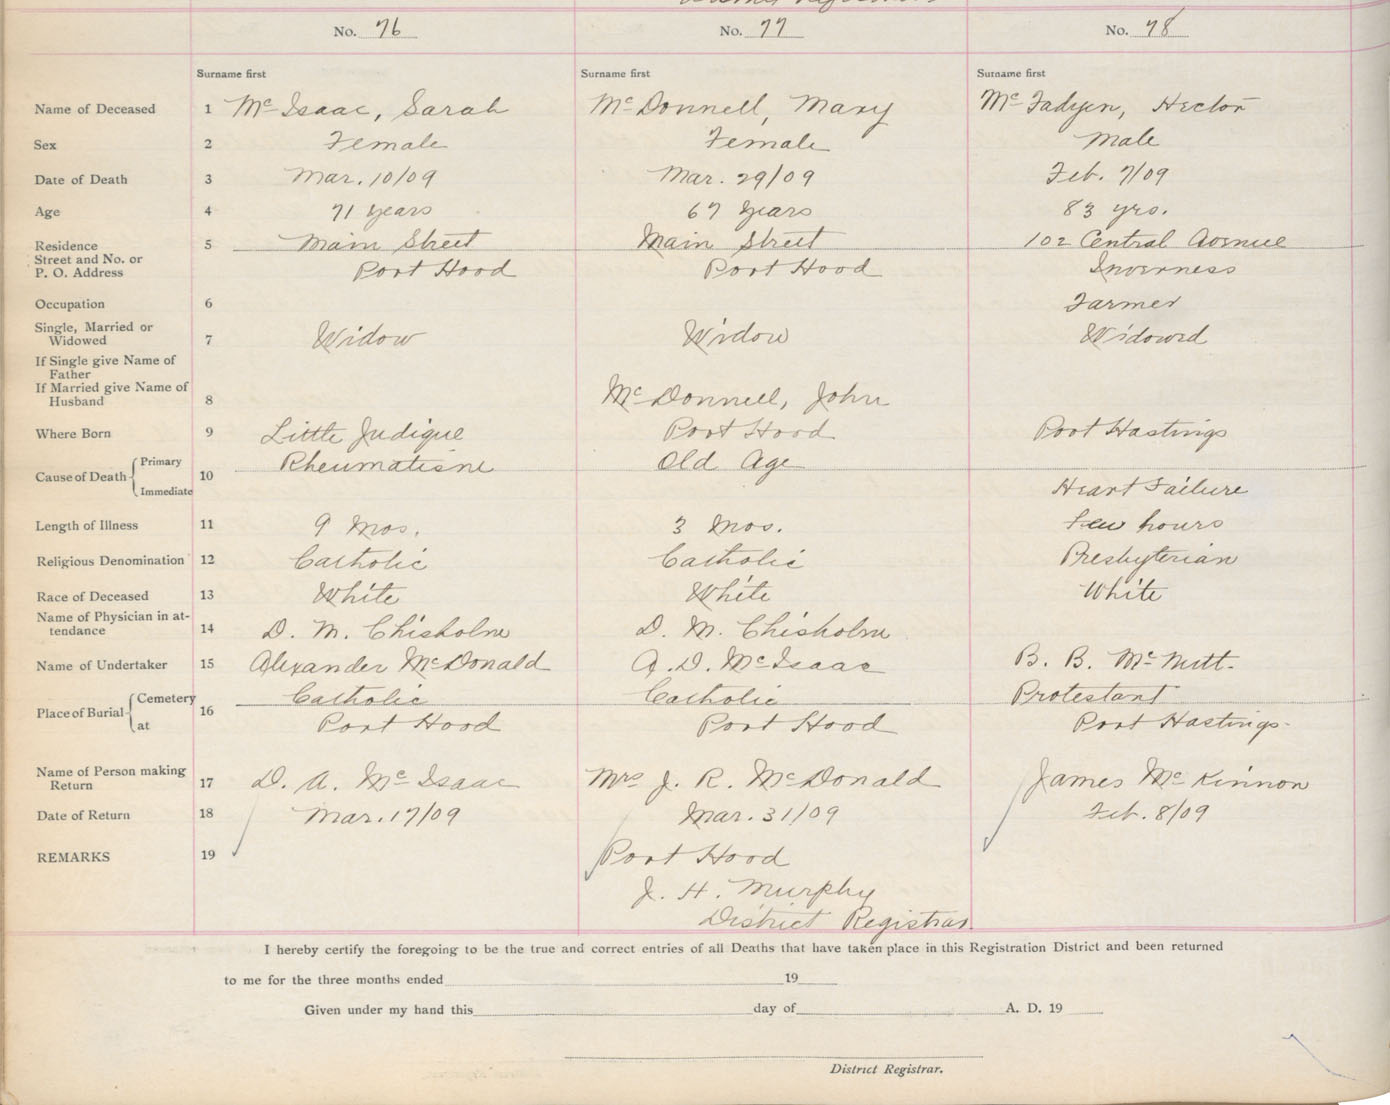 No. 76 No. 77 No. 78
Surname first Surname first Surname first
Name of Deceased 1 McIsaac, Sarah McDonnell, Mary McFadyen, Hector
Sex 2 Female Female Male
Date of Death 3 Mar. 10/09 Mar. 29/09 Feb. 7/09
Age 4 71 years 67 years 83 yrs.
Residence 5 Main Street Main Street 102 Central Avenue
Street and No. or
P. O. Address Port Hood Port Hood Inverness
Occupation 6 Farmer
Single, Married or
Widowed 7 Widow Widow Widowed
If Single give Name of
Father
If Married give Name of
Husband 8 McDonnell, John
Where Born 9 Little Judique Port Hood Port Hastings
Cause of Death Primary 10 Rheumatism Old Age
Immediate Heart Failure
Length of Illness 11 9 Mos. 3 Mos. Few hours
Religious Denomination 12 Catholic Catholic Presbyterian
Race of Deceased 13 White White White
Name of Physician in at-
tendance 14 D. M. Chisholm D. M. Chisholm
Name of Undertaker 15 Alexander McDonald A. D. McIsaac B. B. McNutt.
Place of Burial Cemetery 16 Catholic Catholic Protestant
at Port Hood Port Hood Port Hastings
Name of Person making
Return 17 D. A. McIsaac Mrs J. R. McDonald James McKinnon
Date of Return 18 Mar. 17/09 Mar. 31/09 Feb. 8/09
REMARKS 19 Port Hood
J. H. Murphy
District Registrar.
I hereby certify the foregoing to be the true and correct entries of all Deaths that have taken place in this Registration District and been returned
to me for the three months ended 19
Given under my hand this day of A. D. 19
District Registrar.